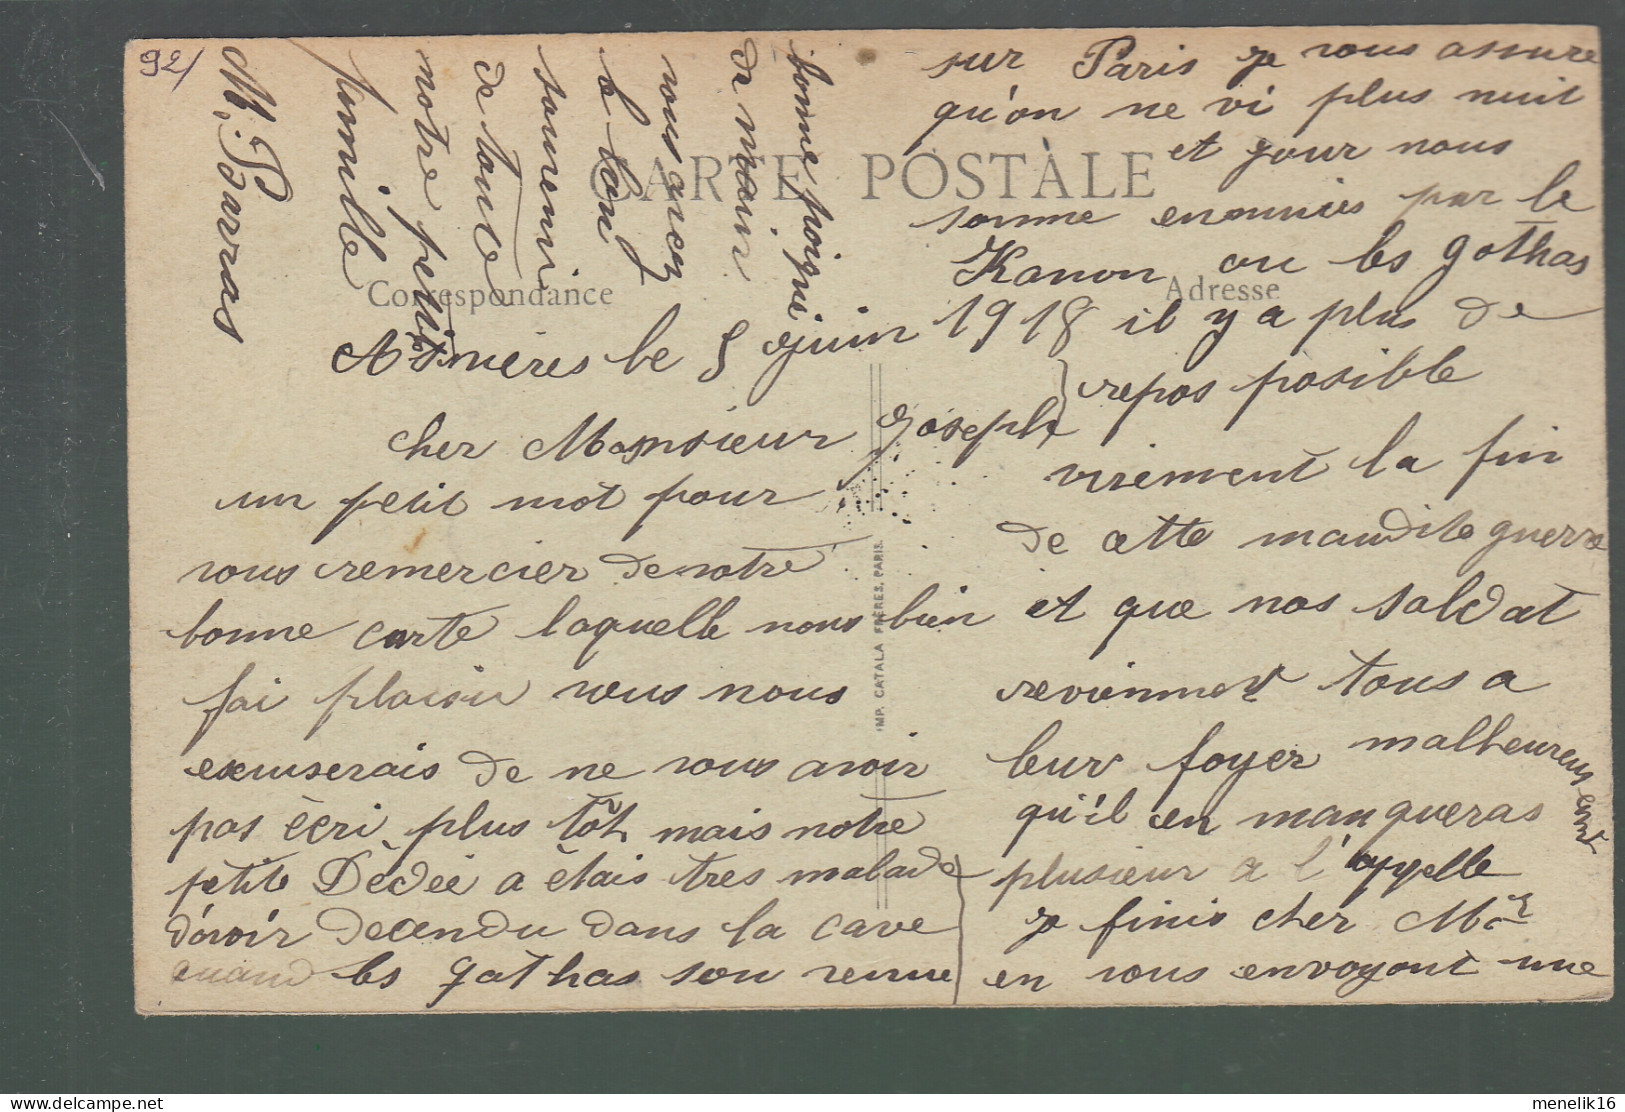 92/
CARTE POSTALE
Correspondance
Adresse
Asnières le 5 juin 1918
cher Monsieur Joseph
un petit mot pour
vous remercier de votre
bonne carte laquelle nous bien
fai plaisir vous nous
excuserais de ne vous avoir
pas écri plus tôt mais notre
petite Dédée a étais tres malade
d'avoir decendu dans la cave
quand les gothas son venue
sur Paris je vous assure
qu'on ne vi plus nuit
et jour nous
somme ennuiés par le
Kanon ou les gothas
il y a plus de
repos posible
virement la fin
de cette maudite guerre
et que nos soldat
reviennent tous a
leur foyer malheureusement
qu'il en manqueras
plusieur a l'appelle
je finis cher Mr
en vous envoyont une
bonne poignée
de main
vous avez
le bon
souvenir
de toute
notre petite
famille
M. Barras
IMP. CATALA FRÈRES, PARIS.
delcampe.net
menelik16